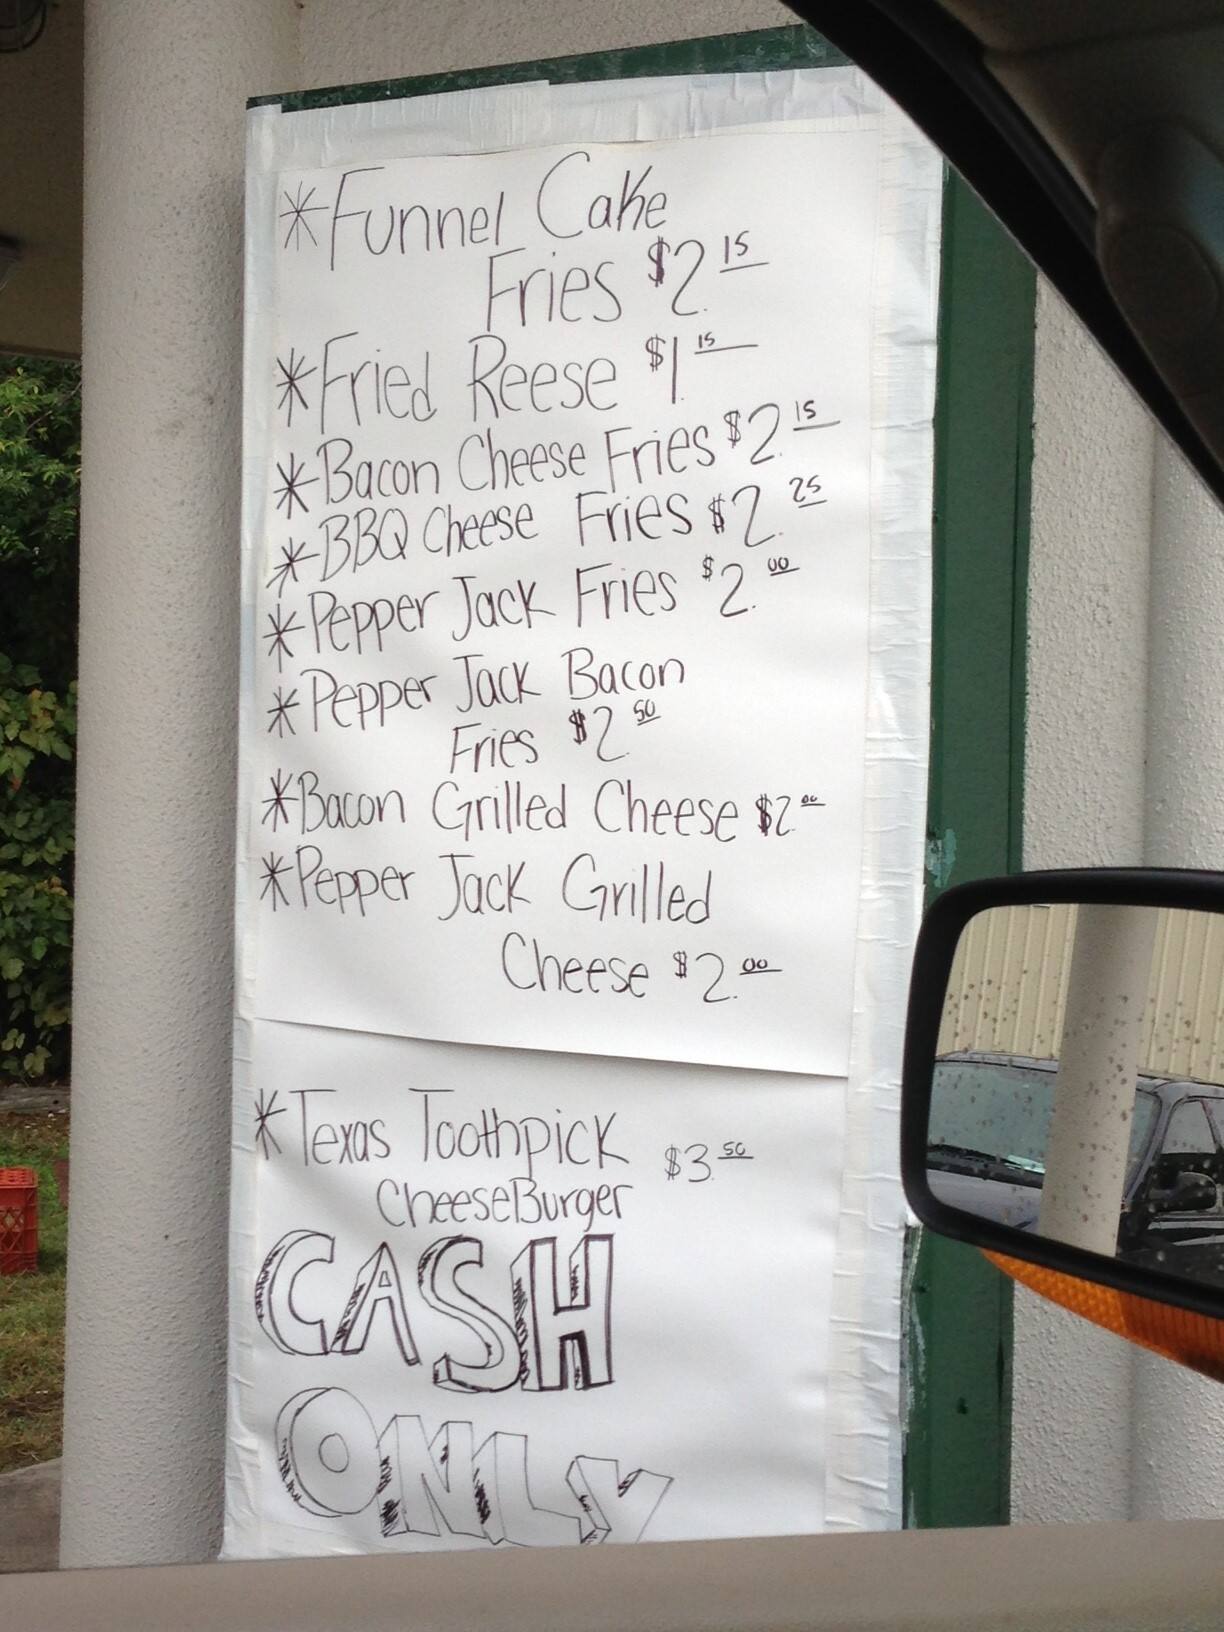 *Funnel Cake
Fries $2.15
*Fried Reese $1.15
*Bacon Cheese Fries $2.15
*BBQ Cheese Fries $2.25
*Pepper Jack Fries $2.00
*Pepper Jack Bacon
Fries $2.50
*Bacon Grilled Cheese $2.00
*Pepper Jack Grilled
Cheese $2.00
*Texas Toothpick $3.50
CheeseBurger
CASH
ONLY